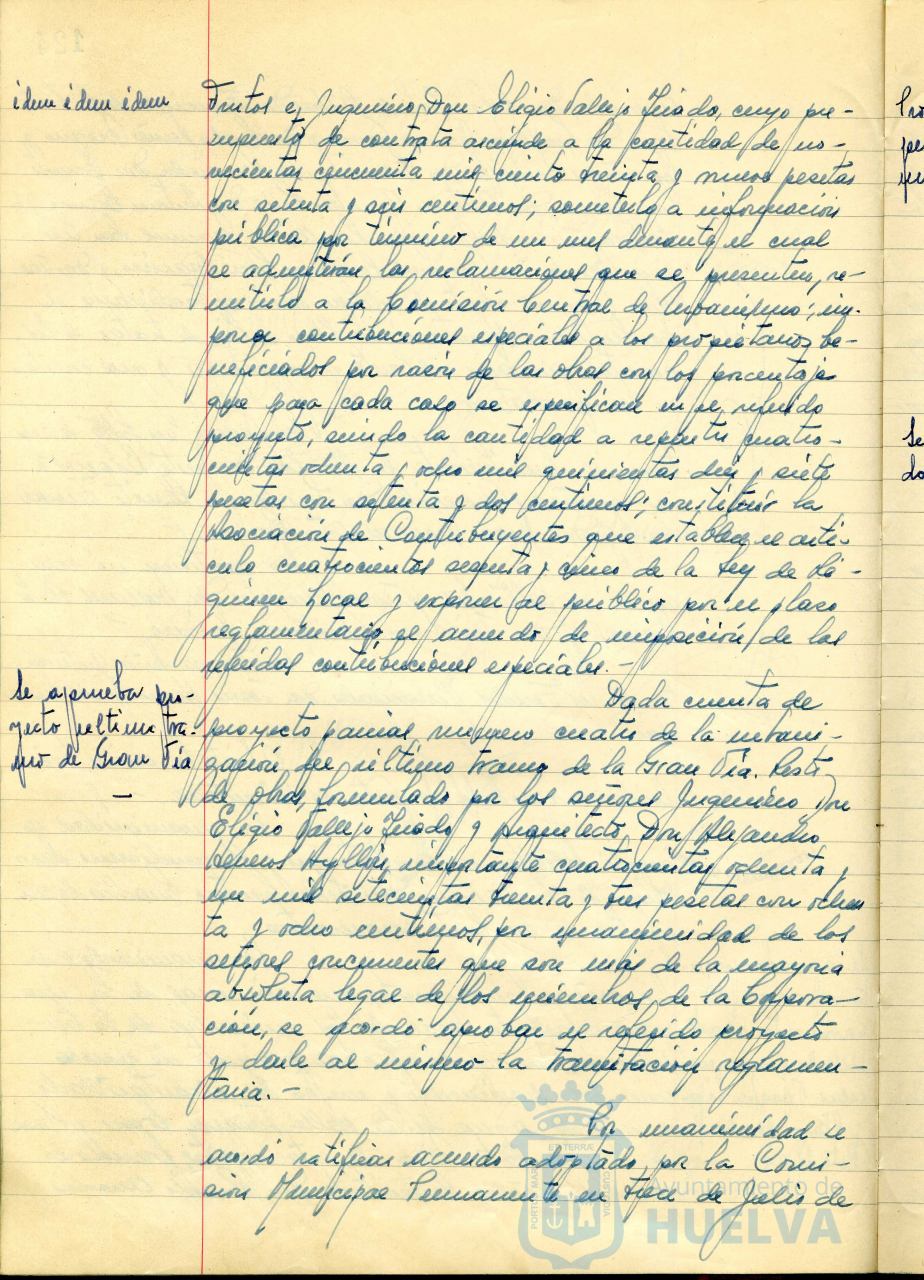 idem idem idem
Puertos e Ingeniero, Don Eligio Vallejo Triado, cuyo pre-
supuesto de contrata asciende a la cantidad de no-
vecientas cincuenta mil ciento treinta y nueve pesetas
con setenta y seis centimos; someterlo a información
pública por término de un mes durante el cual
se admitirán las reclamaciones que se presenten, re-
mitirlo a la Comisión Central de Urbanismo; im-
poner contribuciones especiales a los propietarios be-
neficiados por razón de las obras con los porcentajes
que para cada caso se especifican en el referido
proyecto, siendo la cantidad a repartir cuatro-
cientas ochenta y ocho mil quinientas diez y siete
pesetas con setenta y dos centimos; constituir la
Asociación de Contribuyentes que establece el artí-
culo cuatrocientos sesenta y cinco de la Ley de Ré-
gimen Local y exponer al público por el plazo
reglamentario el acuerdo de imposición de las
referidas contribuciones especiales. -
Se aprueba pro-
yecto ultimo tra-
mo de Gran Vía
—
Dada cuenta de
proyecto parcial numero cuatro de la urbani-
zación del ultimo tramo de la Gran Vía. Resto
de obras, formulado por los señores Ingeniero Don
Eligio Vallejo Triado y Arquitecto Don Alejandro
Herreros Ayllón, importante cuatrocientas ochenta y
un mil setecientas treinta y tres pesetas con ochen
ta y ocho centimos, por unanimidad de los
señores concurrentes que son más de la mayoria
absoluta legal de los miembros de la Corpora-
ción, se acordó aprobar el referido proyecto
y darle al mismo la tramitación reglamen-
taria. -
Por unanimidad se
acordó ratificar acuerdo adoptado, por la Comi-
sion Municipal Permanente en trece de Julio de
PORTUS MARIS
ET TERRÆ
CUSTODIA
Ayuntamiento de
HUELVA
Se
do